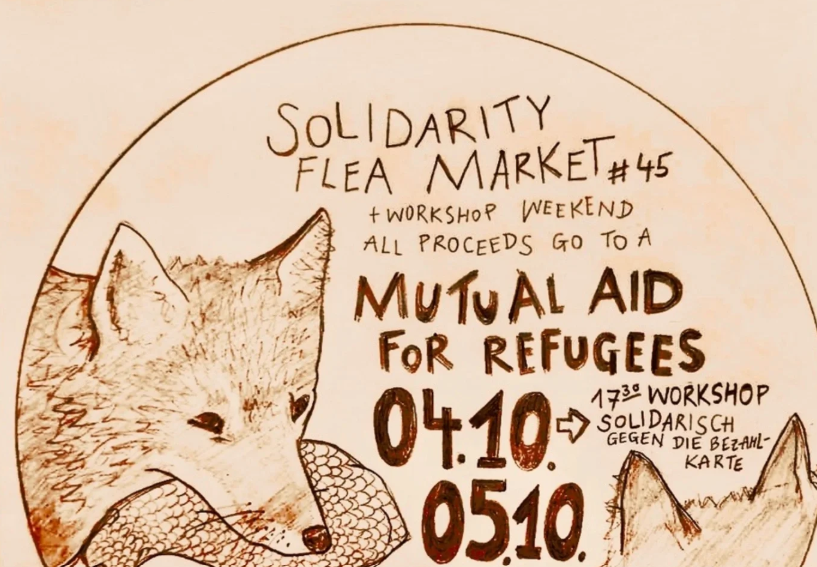 SOLIDARITY
FLEA MARKET #45
+ WORKSHOP WEEKEND
ALL PROCEEDS GO TO A
MUTUAL AID
FOR REFUGEES
04.10. ⇨ 17³⁰ WORKSHOP
SOLIDARISCH
GEGEN DIE BEZAHL-
KARTE
05.10.